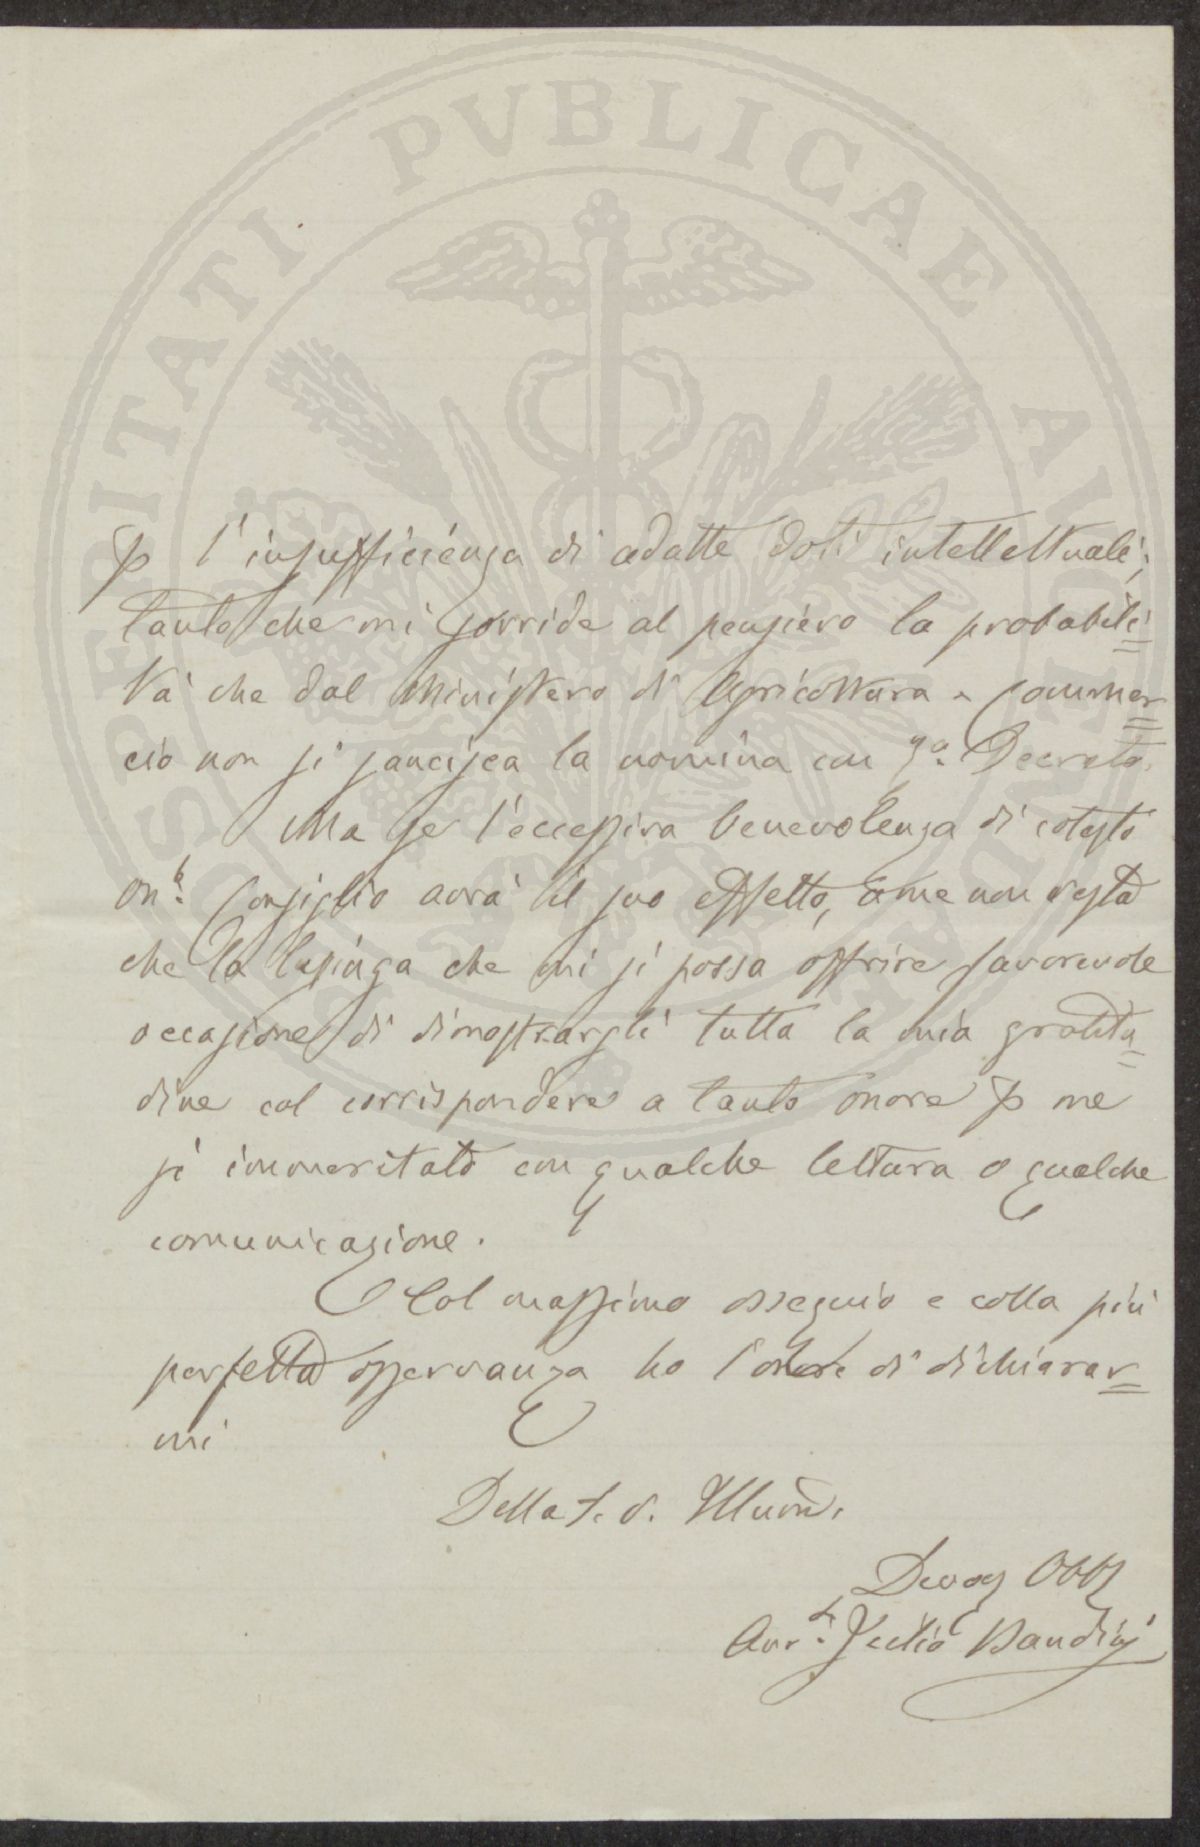 PROSPERITATI PUBLICAE AUGENDAE
p l'insufficienza di adatte doti intellettuali;
tanto che mi sorride al pensiero la probabili=
tà che dal Ministero di Agricoltura e Commer=
cio non si sancisca la nomina con Decreto.
Ma se l'eccessiva benevolenza di cotesto
On.e Consiglio avrà il suo effetto, a me non resta
che la lusinga che mi si possa offrire favorevole
occasione di dimostrargli tutta la mia gratitu=
dine col corrispondere a tanto onore p me
sì immeritato con qualche lettura o qualche
comunicazione.
Col massimo ossequio e colla più
perfetta osservanza ho l'onore di dichiarar=
mi
Della S. V. Illma.
Devo Obb
Avv. Bandini